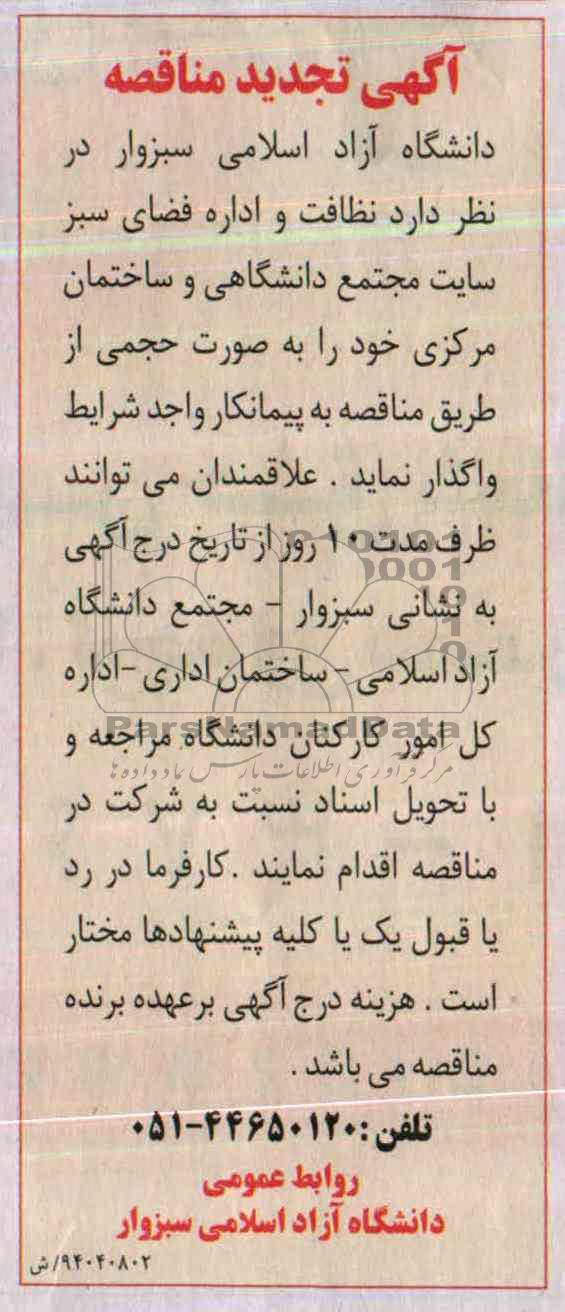 آگهی تجدید مناقصه
دانشگاه آزاد اسلامی سبزوار در
نظر دارد نظافت و اداره فضای سبز
سایت مجتمع دانشگاهی و ساختمان
مرکزی خود را به صورت حجمی از
طریق مناقصه به پیمانکار واجد شرایط
واگذار نماید . علاقمندان می توانند
ظرف مدت ۱۰ روز از تاریخ درج آگهی
به نشانی سبزوار - مجتمع دانشگاه
آزاد اسلامی - ساختمان اداری -اداره
کل امور کارکنان دانشگاه مراجعه و
ParsNamadData
مرکز فرآوری اطلاعات پارس نماد داده ها
با تحویل اسناد نسبت به شرکت در
مناقصه اقدام نمایند .کارفرما در رد
یا قبول یک یا کلیه پیشنهادها مختار
است . هزینه درج آگهی برعهده برنده
مناقصه می باشد .
تلفن :۰۵۱-۴۴۶۵۰۱۲۰
روابط عمومی
دانشگاه آزاد اسلامی سبزوار
۹۴۰۴۰۸۰۲/ش